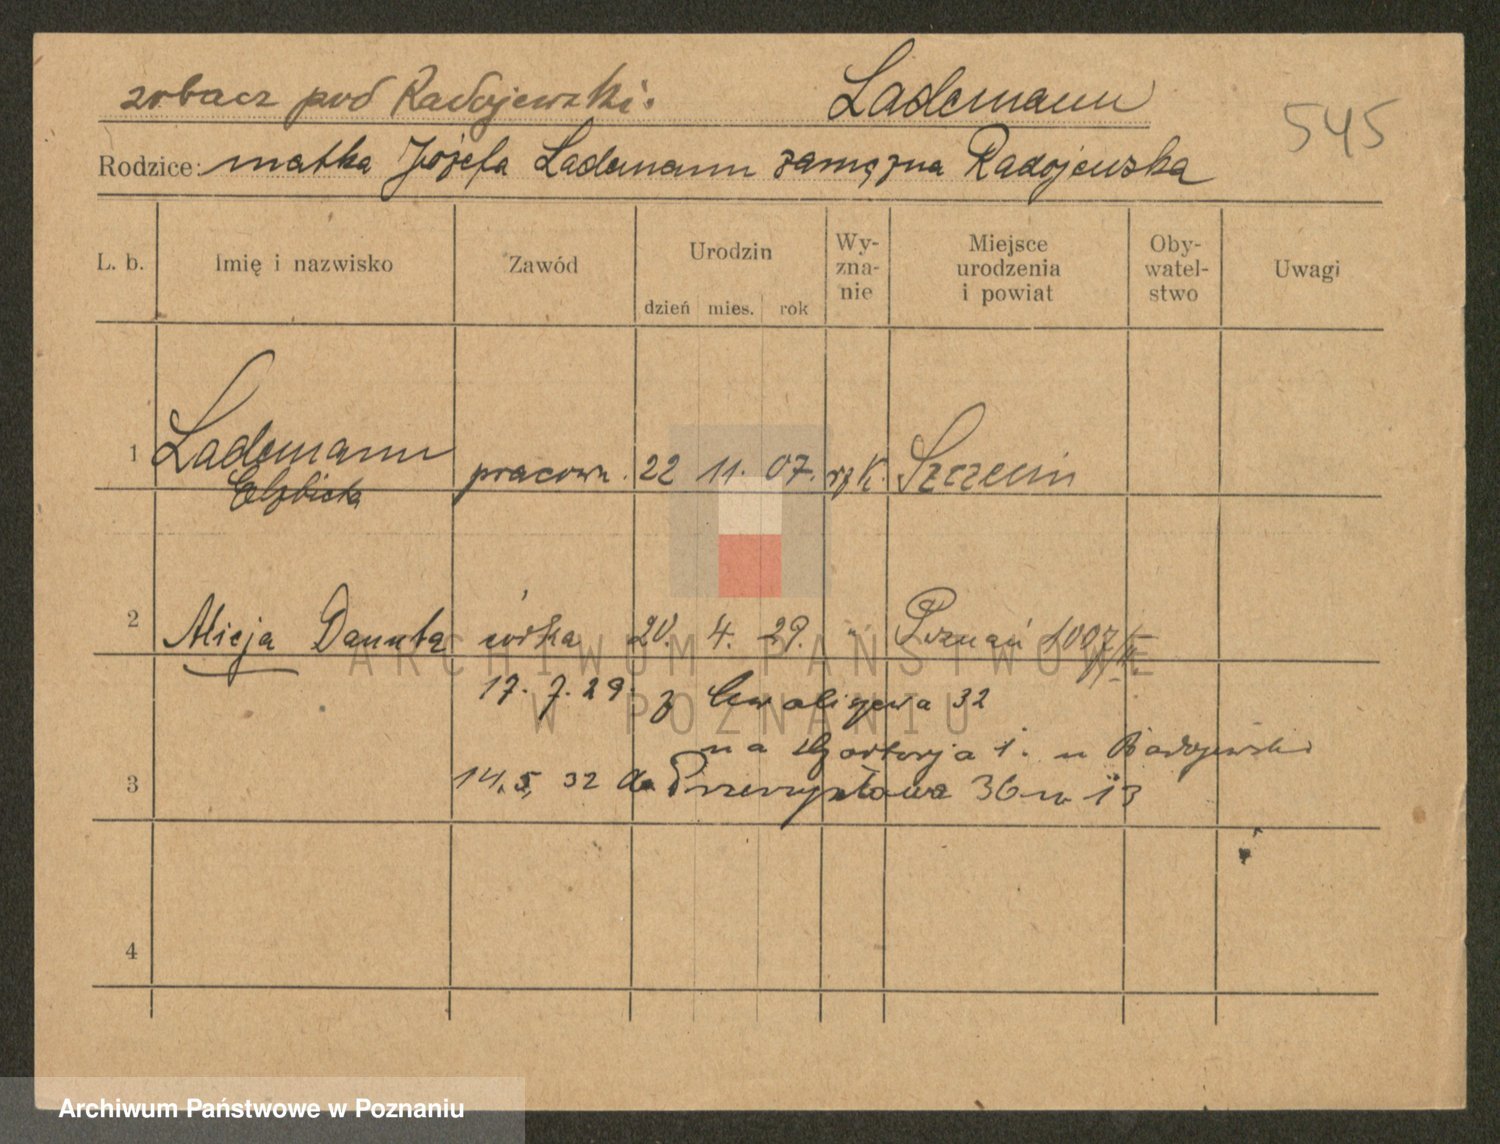 zobacz pod Radojewski. Lademann 545
Rodzice: matka Józefa Lademann zamężna Radojewska
L. b. Imię i nazwisko Zawód Urodzin Wy- Miejsce Oby- Uwagi
zna- urodzenia watel-
nie i powiat stwo
dzień mies. rok
1 Lademann pracown. 22 11. 07. rz K. Szczecin
Elżbieta
2 Alicja Danuta córka 20. 4. 29. " Poznań 1007/II
17. 7. 29. z 32
na 1. u Radojewski
3 14. 5. 32 do Przemysłowa 36 m 13
4
ARCHIWUM PAŃSTWOWE
W POZNANIU
Archiwum Państwowe w Poznaniu